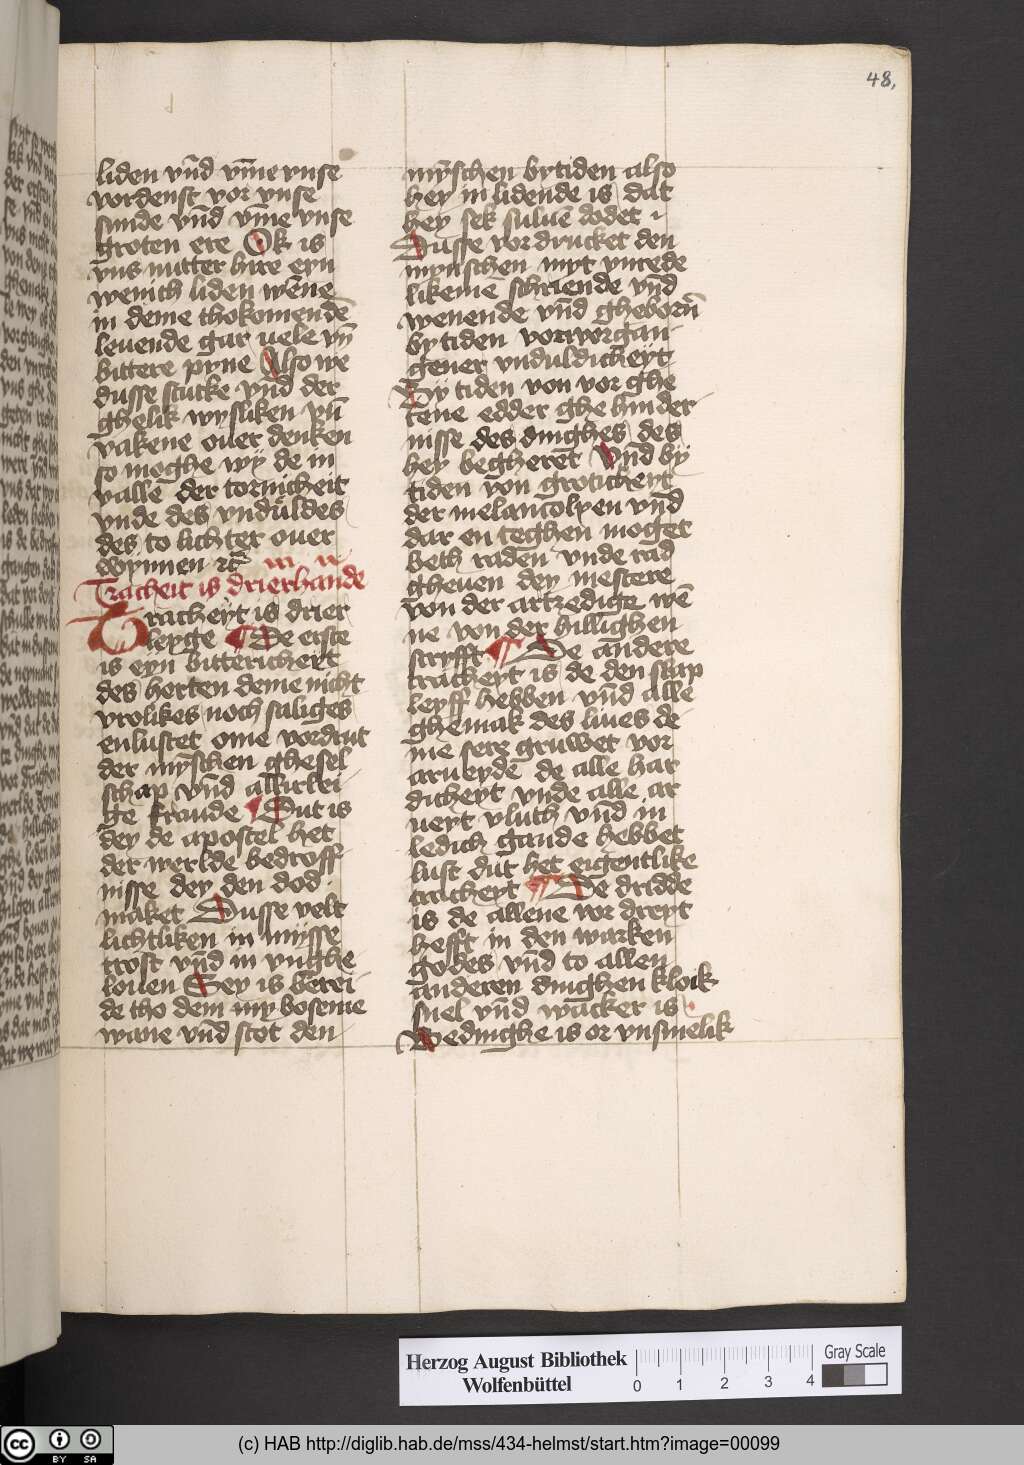 48,
liden vn̄d vm̄e vnse
vordenst vor vnse
sunde vn̄d vm̄e vnse
groten ere Ok is
vns nutter hire eyn
wenich liden wēne
in deme thokomende
leuende gar uele vn̄
bittere pyne Also we
dusse stucke vn̄d der
ghelik wysliken vn̄
vakene ouer denken
so moghe wy de in
valle der tornicheit
vnde des vnduldes
des to lichter ouer
wynnen
Tracheit is drierhande
Tracheyt is drier
leyge De erste
is eyn bittericheyt
des herten deme nicht
vrolikes noch saliges
enlustet ome vordrut
der myschen ghesel
schap vn̄d allirlei
ge fraude Dut is
dey de apostel het
der werlde bedroff
nisse dey den dod
maket Dusse velt
lichtliken in mysse
trost vn̄d in vnghe
louen Sey is berei
de tho dem my boseme
wane vn̄d scot den
mȳschen bytiden also
hey in lidende is dat
hey sek suluē dodet
Dusse vor drucket den
mynschen myt vnrede
likeme schriende vn̄d
wenende vn̄d gheborn̄
bytiden vorworgan
gener vnduldicheyt
By tiden von vor ghe
tene edder ghe hinder
nisse des dinghes des
hey begheret Vn̄d by
tiden von groticheyt
der melancolyen vn̄d
dar en teghen moget
beth raden vnde rad
gheuen dey mestere
von der artzedige wē
ne von der hillighen
scryfft De andere
tracheyt is de den slap
leyff hebben vn̄d alle
ghemak des liues de
me sere gruwet vor
arubeyde de alle har
dicheyt vnde alle ar
ueyt vluth vn̄d in
ledich gande hebbet
lust dut het eigentlike
tracheyt De dridde
is de allene vor dreyt
hefft in den warken
godes vn̄d to allen
anderen dinghen kloik
snel vn̄d wacker is
Wedinghe is or vnsmelik
Herzog August Bibliothek
Wolfenbüttel
0 1 2 3 4
Gray Scale
cc BY SA
(c) HAB http://diglib.hab.de/mss/434-helmst/start.htm?image=00099